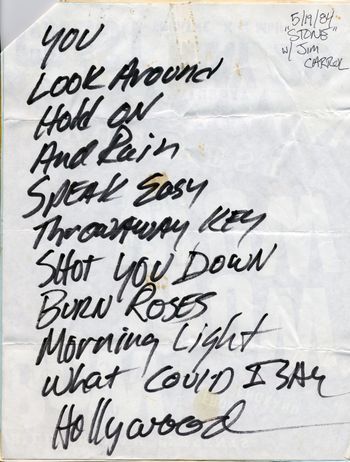 5/19/84
"STONE"
w/ JIM
CARROL
YOU
LOOK AROUND
HOLD ON
AND RAIN
SPEAK EASY
THROWAWAY KEY
SHOT YOU DOWN
BURN ROSES
MORNING LIGHT
WHAT COULD I SAY
HOLLYWOOD